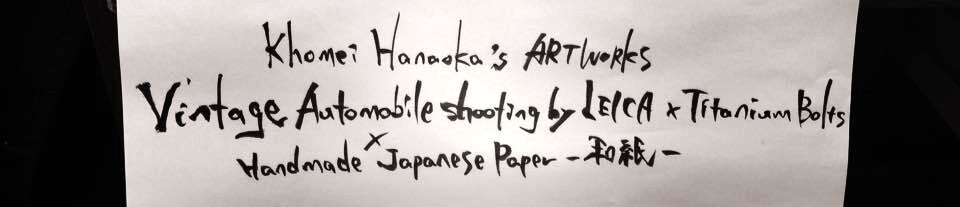 Khomei Hanaoka's ARTWorks
Vintage Automobile shooting by LEICA × Titanium Bolts
×
Handmade Japanese Paper - 和紙 -